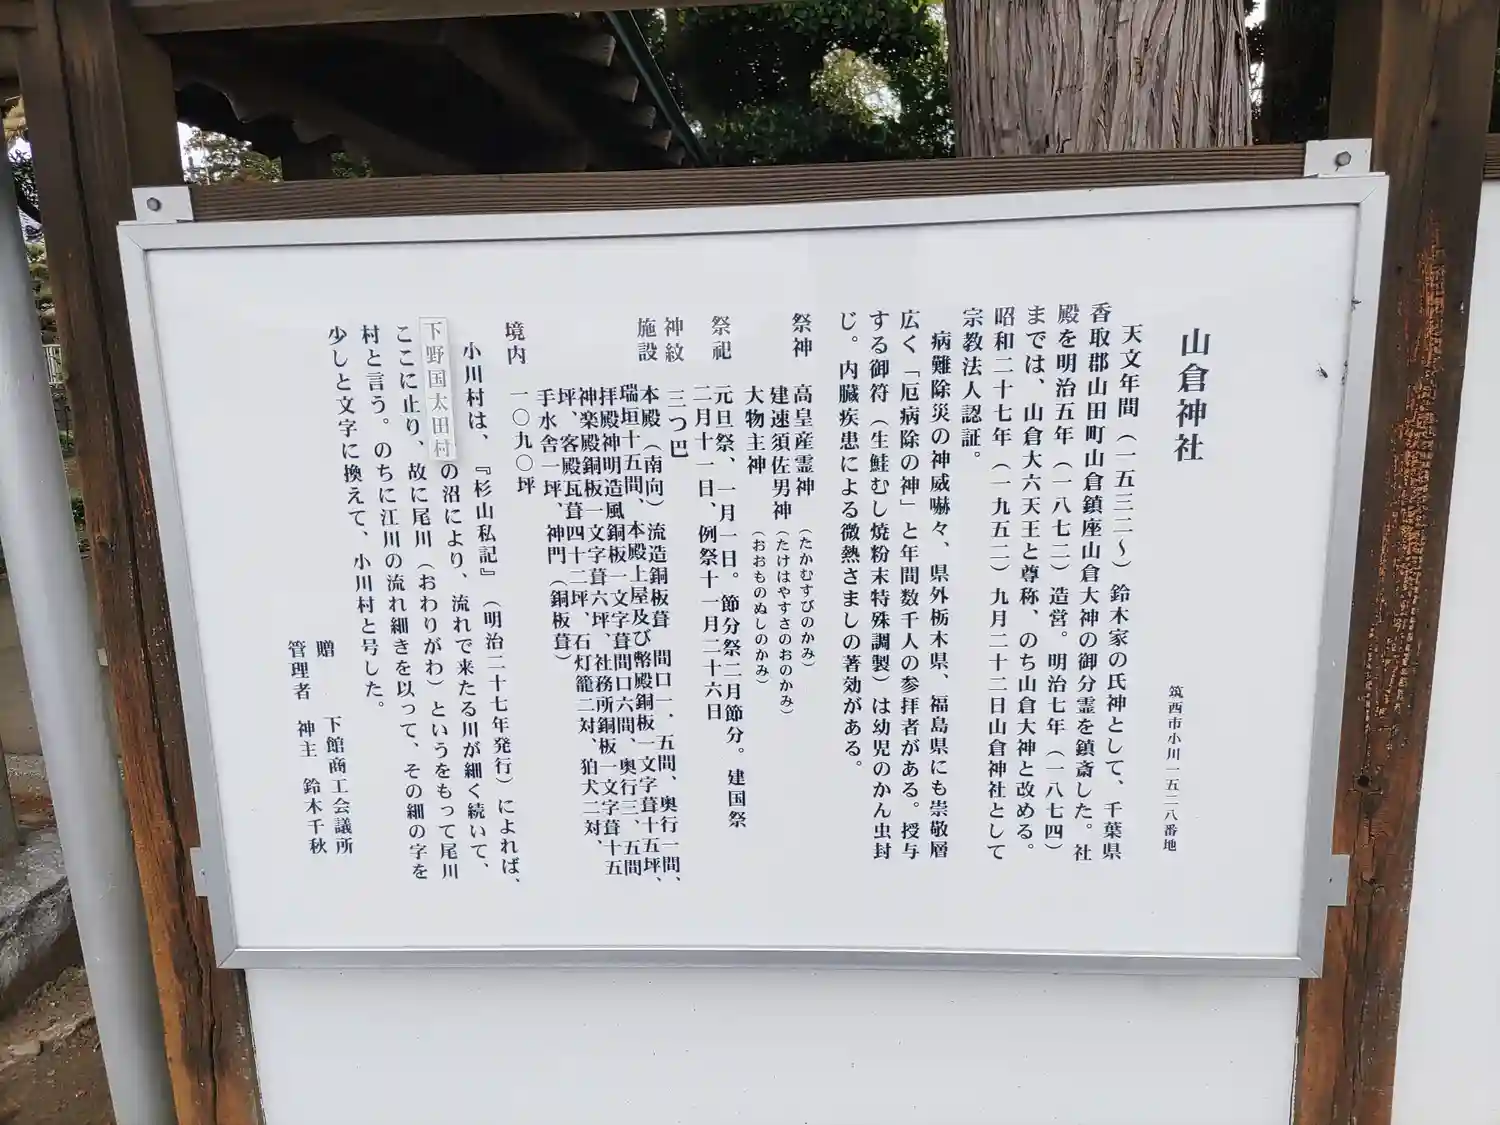 山倉神社
筑西市小川一五二八番地
天文年間（一五三二～）鈴木家の氏神として、千葉県
香取郡山田町山倉鎮座山倉大神の御分霊を鎮斎した。社
殿を明治五年（一八七二）造営。明治七年（一八七四）
までは、山倉大六天王と尊称、のち山倉大神と改める。
昭和二十七年（一九五二）九月二十二日山倉神社として
宗教法人認証。
病難除災の神威嚇々、県外栃木県、福島県にも崇敬層
広く「厄病除の神」と年間数千人の参拝者がある。授与
する御符（生鮭むし焼粉末特殊調製）は幼児のかん虫封
じ。内臓疾患による微熱さましの著効がある。
祭神　高皇産霊神（たかむすびのかみ）
建速須佐男神（たけはやすさのおのかみ）
大物主神（おおものぬしのかみ）
祭祀　元旦祭、一月一日。節分祭二月節分。建国祭
二月十一日、例祭十一月二十六日
神紋　三つ巴
施設　本殿（南向）流造銅板葺　間口一．五間、奥行一間、
瑞垣十五間、本殿上屋及び幣殿銅板一文字葺十五坪、
拝殿神明造風銅板一文字葺間口六間、奥行三、五間
神楽殿銅板一文字葺六坪、社務所銅板一文字葺十五
坪、客殿瓦葺四十二坪、石灯籠二対、狛犬二対、
手水舎一坪、神門（銅板葺）
境内　一〇九〇坪
小川村は、『杉山私記』（明治二十七年発行）によれば、
下野国太田村の沼により、流れで来たる川が細く続いて、
ここに止り、故に尾川（おわりがわ）というをもって尾川
村と言う。のちに江川の流れ細きを以って、その細の字を
少しと文字に換えて、小川村と号した。
贈　下館商工会議所
管理者　神主　鈴木千秋